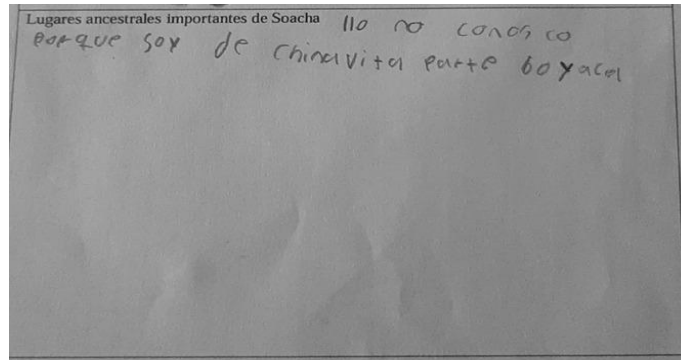 Lugares ancestrales importantes de Soacha llo no conosco
porque soy de chinavita parte boyaca